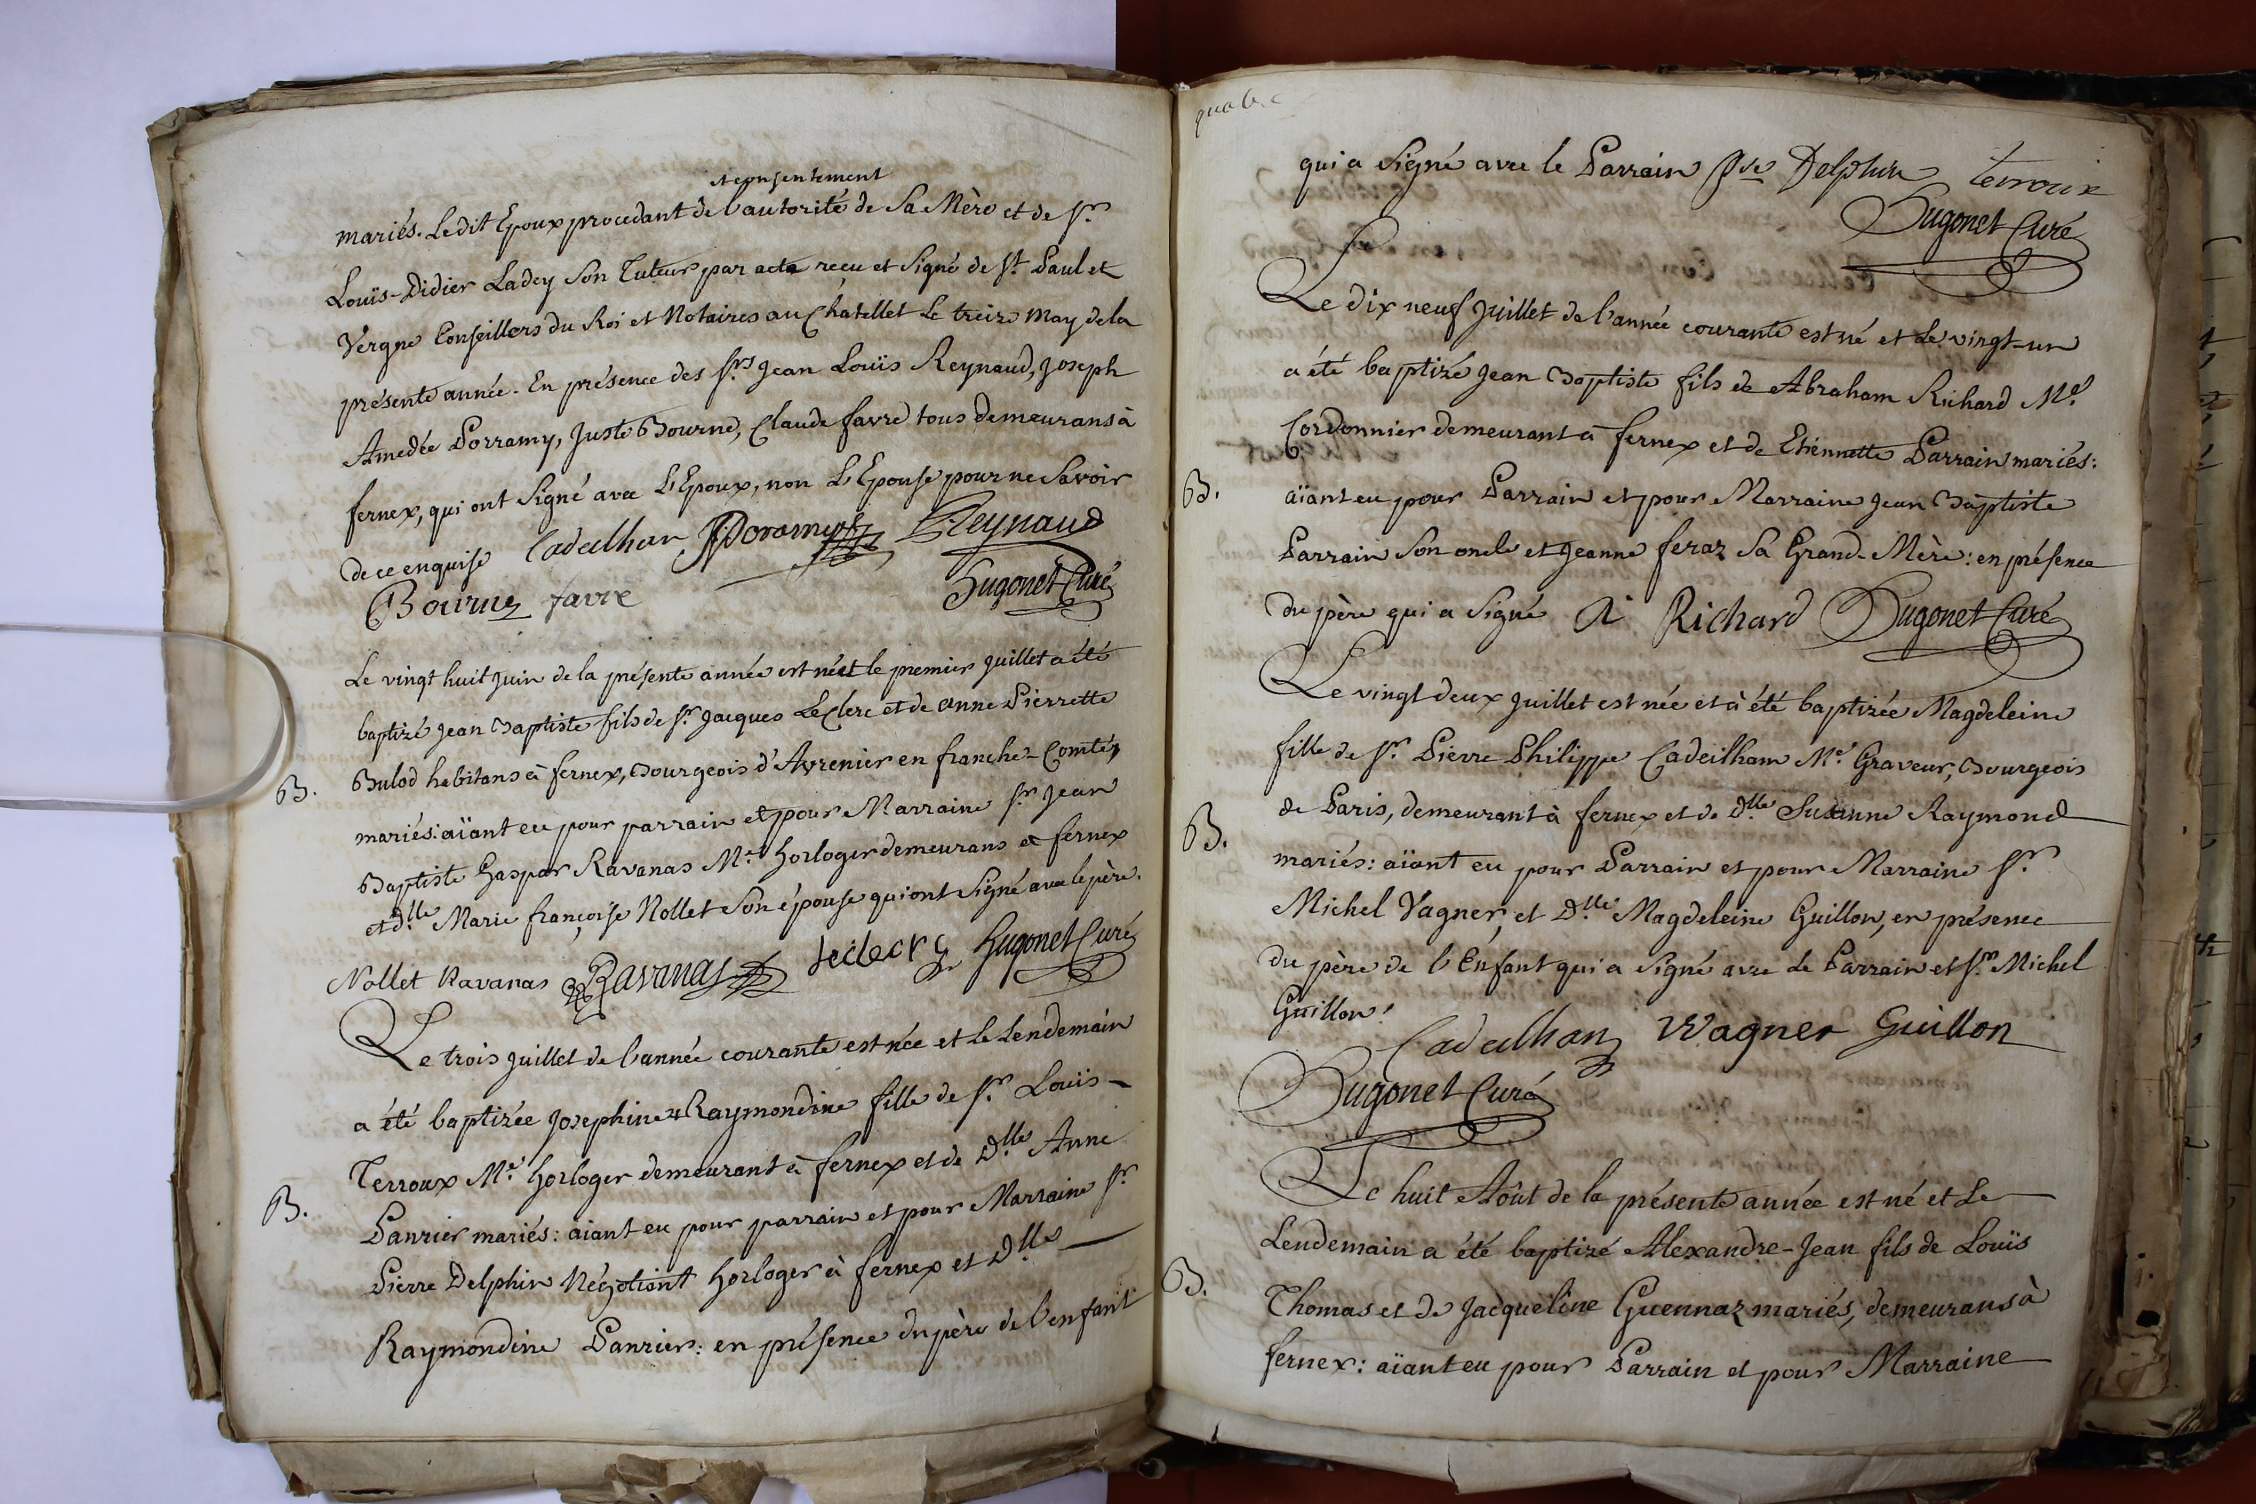 et consentement
mariés. Le dit Epoux procedant de l'autorité de Sa Mère et de Sr
Louis-Didier Ladey Son Tuteur par acte recu et Signé de St Paul et
Vergne Conseillers du Roi et Notaires au Chatellet Le treize May de la
présente année. En présence des Srs Jean Louïs Reynaud, Joseph
Amedée Porramy, Juste Bourne, Claude favre tous demeurans à
fernex, qui ont Signé avec L'Epoux, non L'Epouse pour ne Savoir
de ce enquise Cadeilhan Reynaud
Bourne favre Hugonet Curé
Le vingt huit Juin de la présente année est né et le premier Juillet a été
baptizé Jean Baptiste fils de Sr Jacques LeClerc et de Anne Pierrette
Bulod habitans à fernex, Bourgeois d'Avrenier en franche-Comté,
B.
mariés: aïant eu pour parrain et pour Marraine Sr Jean
Baptiste Gaspar Ravanas Me horloger demeurans a fernex
et Dlle Marie françoise Nollet Son épouse qui ont Signé avec le père.
Nollet Ravanas Ravanas leclerc Hugonet Curé
Le trois Juillet de l'année courante est née et Le Lendemain
a été baptizée Josephine Raymondine fille de Sr Louïs
Terroux Me horloger demeurant à fernex et de Dlle Anne
B.
Panrier mariés: aiant eu pour parrain et pour Marraine Sr
Pierre Delphin Négotiant horloger à fernex et Dlle
Raymondine Panrier: en présence du père de l'enfant
qui a Signé avec le Parrain Pre Delphin Terroux
Hugonet Curé
Le dix neuf Juillet de l'année courante est né et Le vingt-un
a été baptizé Jean Baptiste fils de Abraham Richard Me
Cordonnier demeurant à fernex et de Etiennette Parrain mariés:
B.
aïant eu pour Parrain et pour Marraine Jean Baptiste
Parrain Son oncle et Jeanne feraz Sa Grand-Mère: en présence
du père qui a Signé A Richard Hugonet Curé
Le vingt deux Juillet est née et à été baptizée Magdeleine
fille de Sr Pierre Philippe Cadeilham Me Graveur, Bourgeois
de Paris, demeurant à fernex et de Dlle Susanne Raymond
B.
mariés: aïant eu pour Parrain et pour Marraine Sr
Michel Vagner, et Dlle Magdeleine Guillon, en présence
du père de l'Enfant qui a Signé avec Le Parrain et Sr Michel
Guillon.
Cadeilhan Wagner Guillon
Hugonet Curé
Le huit Août de la présente année est né et Le
Lendemain a été baptizé Alexandre-Jean fils de Louïs
B.
Thomas et de Jacqueline Guennaz mariés, demeurans à
fernex: aïant eu pour Parrain et pour Marraine